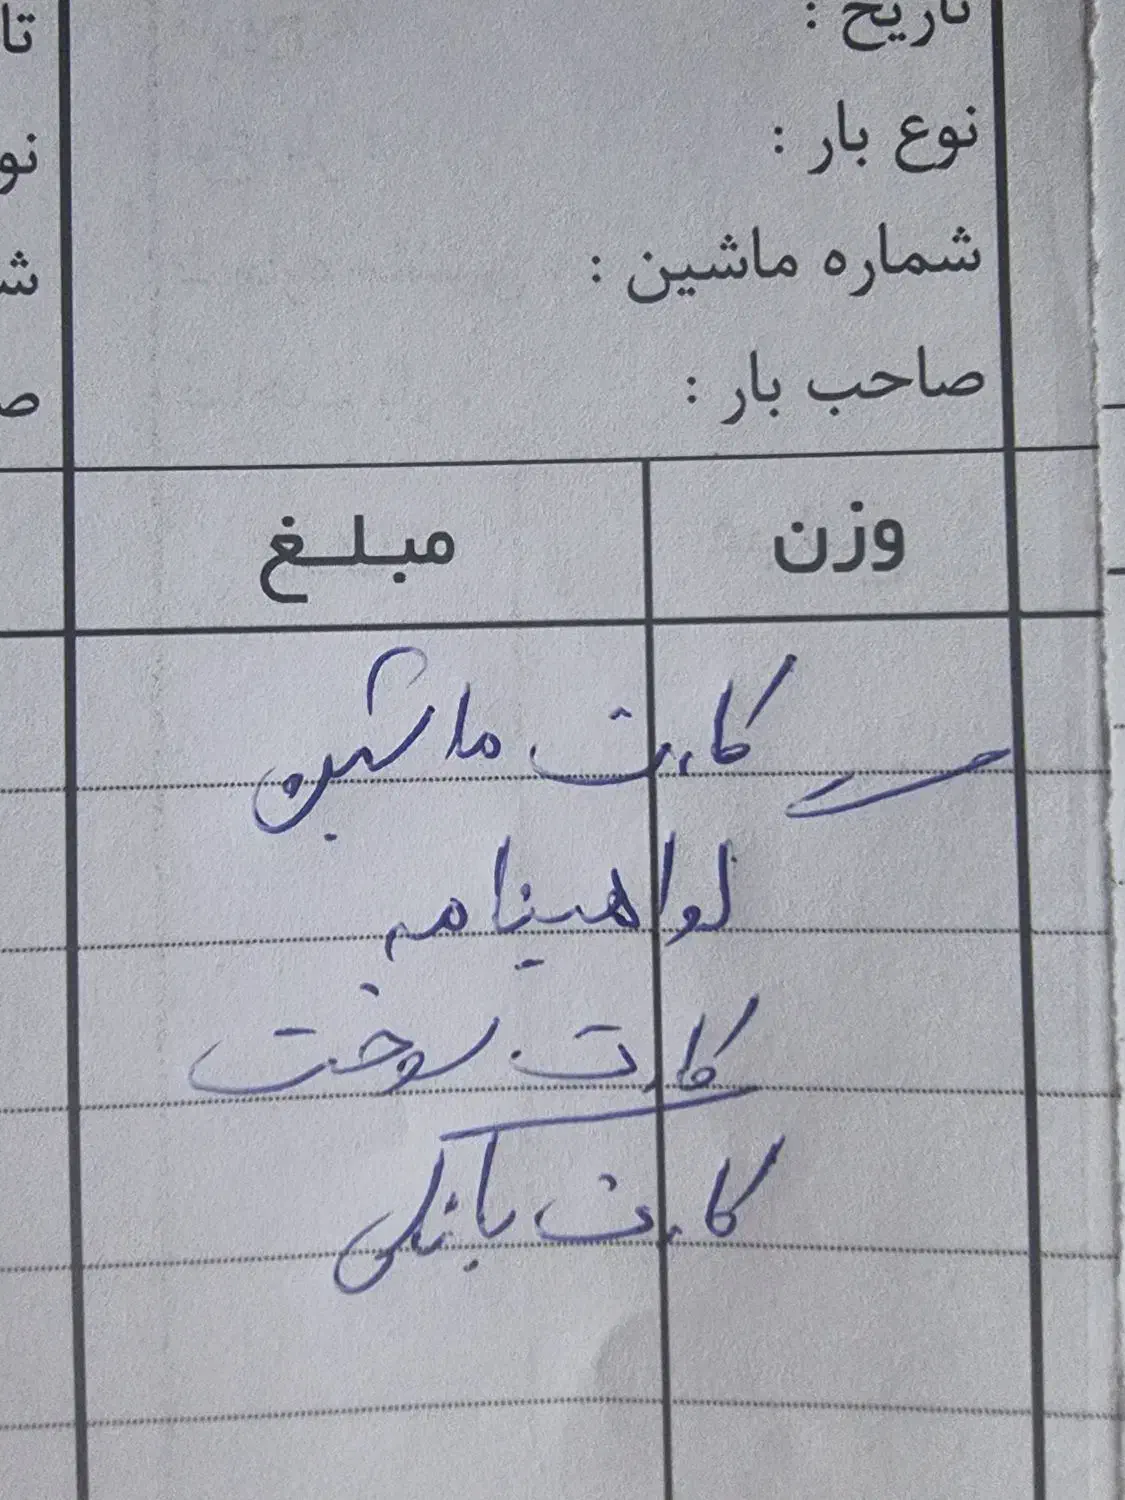 تاریخ : تا
نوع بار : نو
شماره ماشین : ش
صاحب بار : ص
وزن مبلغ
کارت ماشین
گواهینامه
کارت سوخت
کارت بانکی